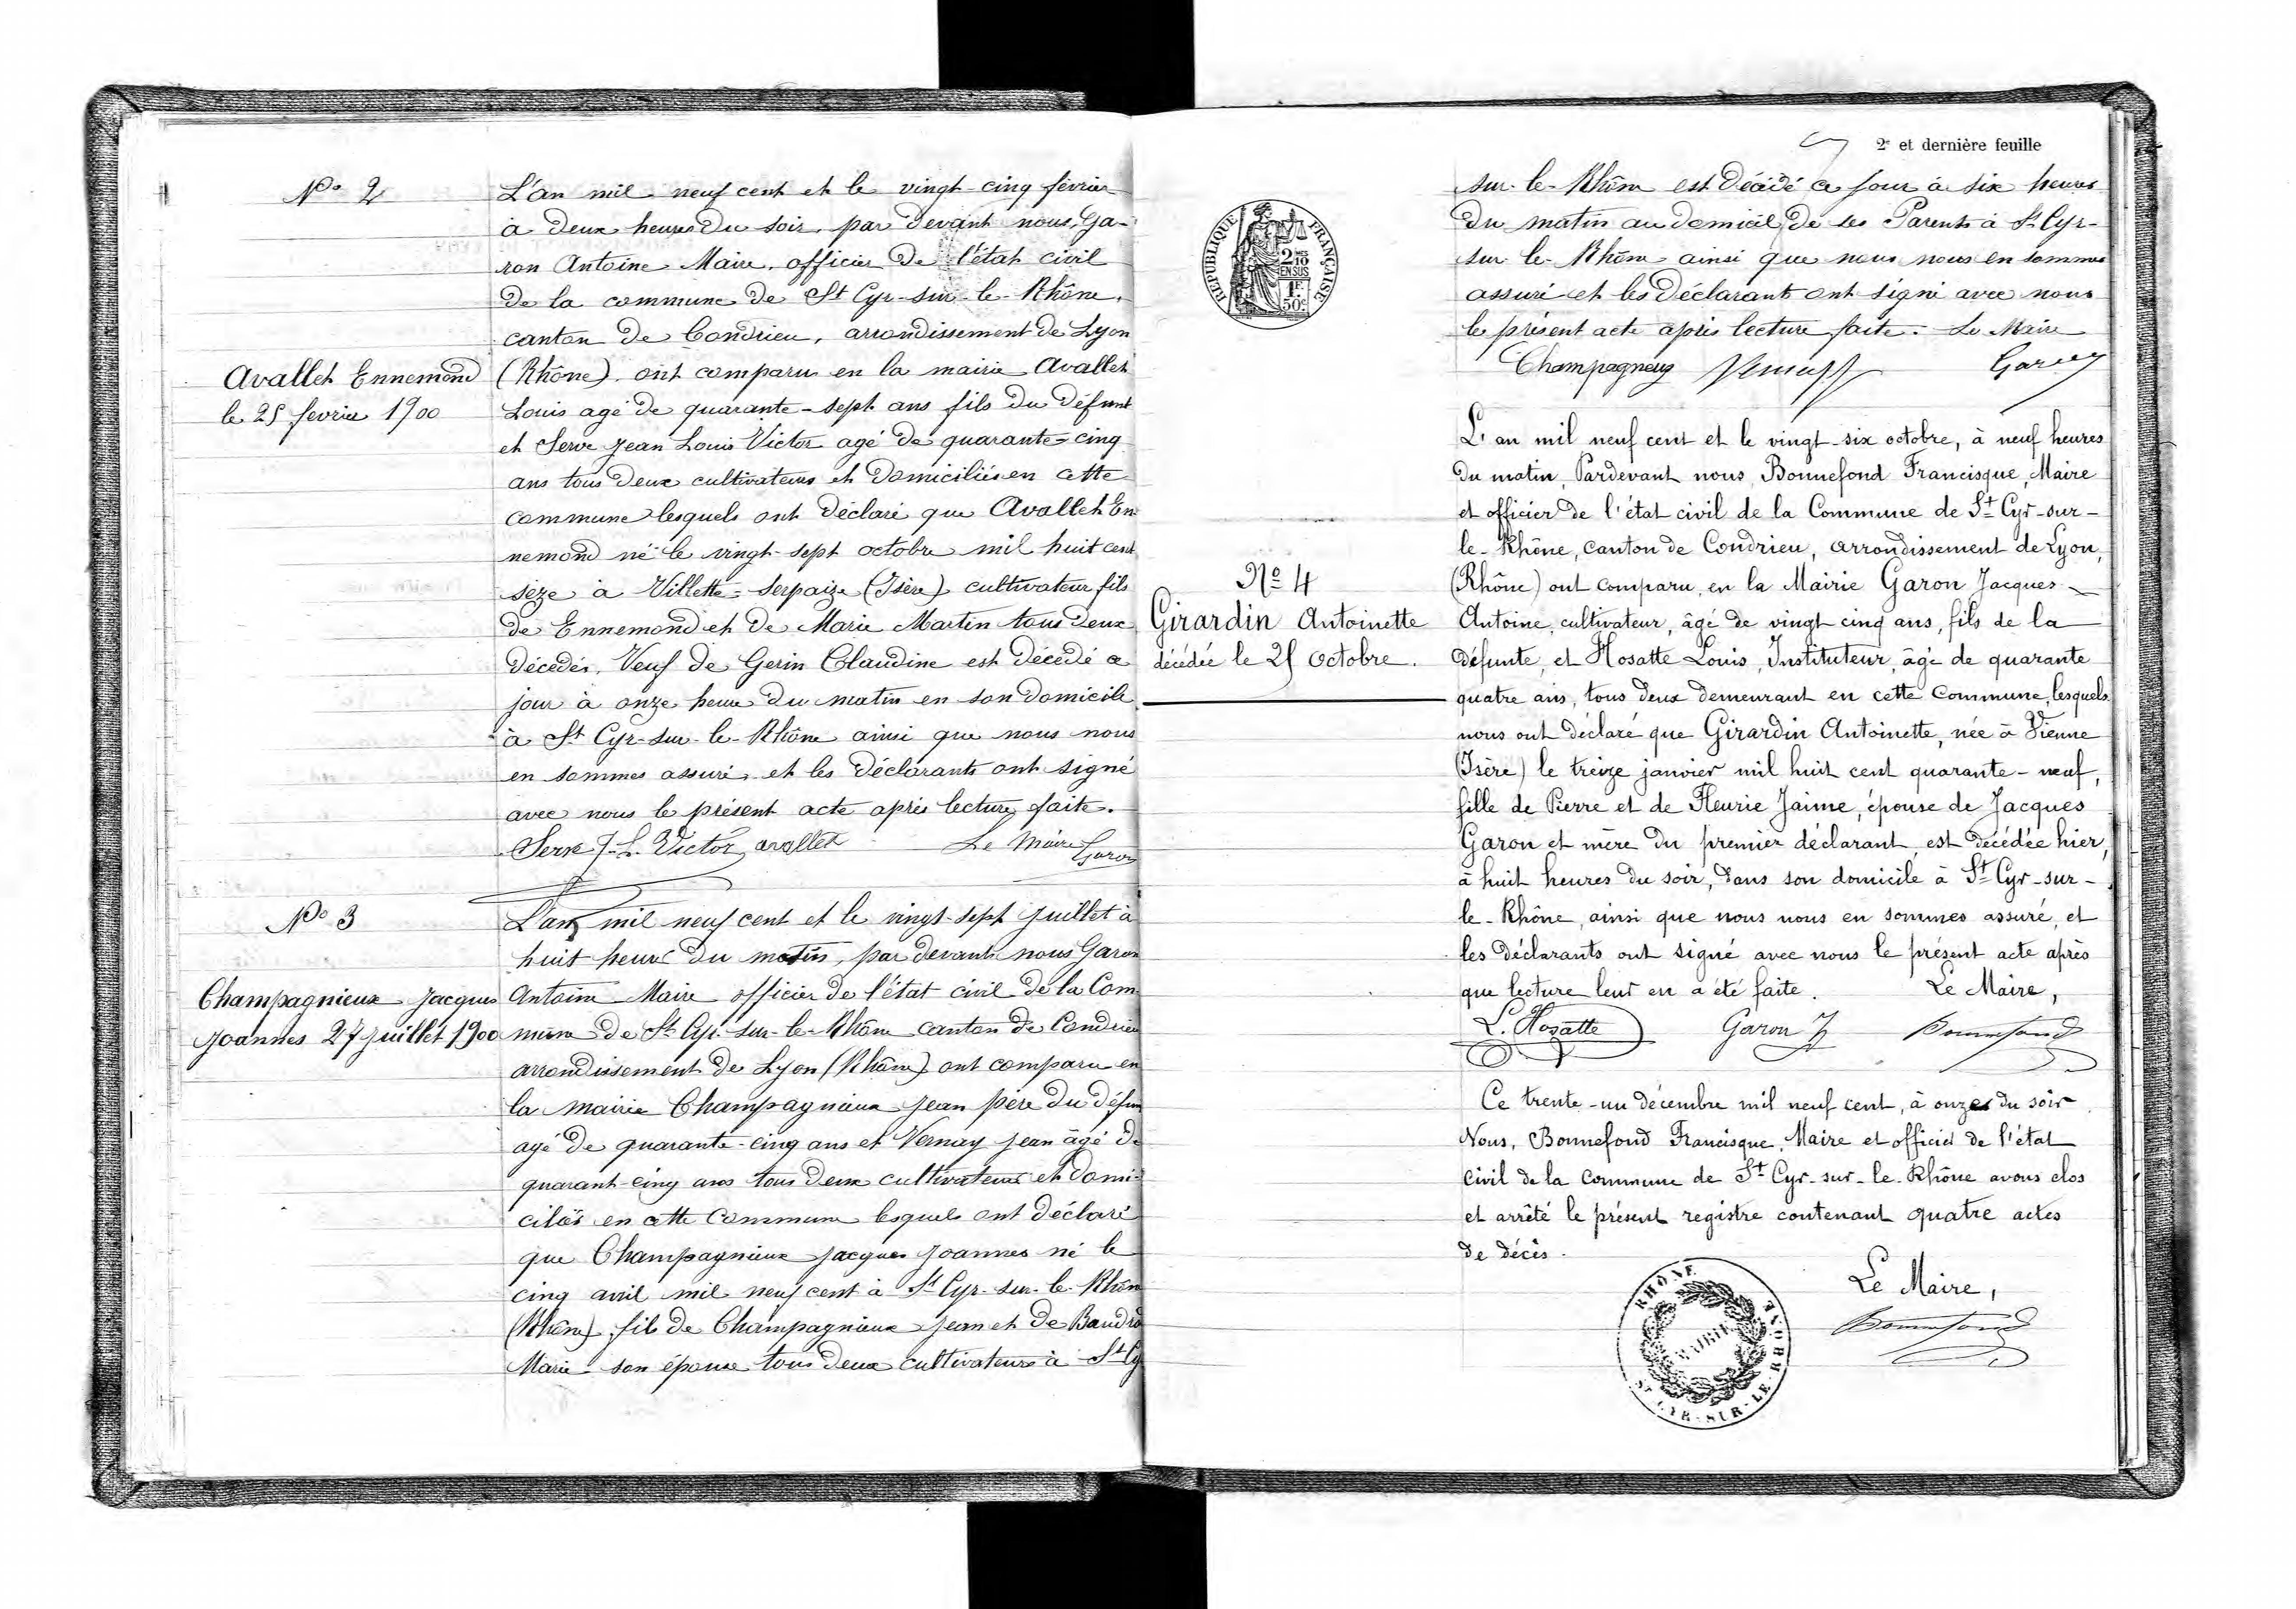 N° 2
L'an mil neuf cent et le vingt-cinq février
à deux heures du soir, par devant nous, Ga-
ron Antoine Maire, officier de l'état civil
de la commune de St Cyr-sur-le-Rhône,
canton de Condrieu, arrondissement de Lyon
Avallet Ennemond
le 25 février 1900
(Rhône), ont comparu en la mairie Avallet
Louis agé de quarante-sept ans fils du défunt
et Serve Jean Louis Victor agé de quarante-cinq
ans tous deux cultivateurs et domiciliés en cette
commune lesquels ont déclaré que Avallet En-
nemond né le vingt-sept octobre mil huit cent
seze à Villette-Serpaize (Isère) cultivateur fils
de Ennemond et de Marie Martin tous deux
décédés, Veuf de Gerin Claudine est décédé ce
jour à onze heure du matin en son domicile
à St Cyr-sur-le-Rhône ainsi que nous nous
en sommes assuré, et les déclarants ont signé
avec nous le présent acte après lecture faite.
Serve J-L. Victor avallet Le Maire Garon
N° 3
L'an mil neuf cent et le vingt-sept juillet à
huit heure du matin, par devant nous Garon
Champagnieux Jacques
Joannes 27 juillet 1900
Antoine Maire officier de l'état civil de la Com
mune de St Cyr-sur-le-Rhône canton de Condrieu
arrondissement de Lyon (Rhône) ont comparu en
la mairie Champagnieux Jean père du défun
agé de quarante-cinq ans et Vernay Jean âgé de
quarant-cinq ans tous deux cultivateurs et domi-
ciliés en cette Commune lesquels ont déclaré
que Champagnieux Jacques Joannes né le
cinq avril mil neuf cent à St Cyr-sur-le-Rhône
(Rhône), fils de Champagnieux Jean et de
Marie son épouse tous deux cultivateurs à St Cy
2e et dernière feuille
RÉPUBLIQUE FRANÇAISE
2 MES
10
EN SUS
1 F.
50 c.
sur-le-Rhône est décédé ce jour à six heures
du matin au domicil de ses Parents à St Cyr-
sur-le-Rhône ainsi que nous nous en sommes
assuré et les déclarants ont signé avec nous
le présent acte après lecture faite. Le Maire
Champagneux Garon
L'an mil neuf cent et le vingt-six octobre, à neuf heures
du matin, Pardevant nous Bonnefond Francisque, Maire
et officier de l'état civil de la Commune de St Cyr-sur-
le-Rhône, canton de Condrieu, arrondissement de Lyon,
N° 4
Girardin Antoinette
décédée le 25 octobre.
(Rhône) ont comparu en la Mairie Garon Jacques
Antoine, cultivateur, âgé de vingt cinq ans, fils de la
défunte, et Hosatte Louis, Instituteur, âgé de quarante
quatre ans, tous deux demeurant en cette Commune, lesquels
nous ont déclaré que Girardin Antoinette, née à Vienne
(Isère) le treize janvier mil huit cent quarante-neuf,
fille de Pierre et de Fleurie Jaime, épouse de Jacques
Garon et mère du premier déclarant, est décédée hier,
à huit heures du soir, dans son domicile à St Cyr-sur-
le-Rhône, ainsi que nous nous en sommes assuré, et
les déclarants ont signé avec nous le présent acte après
que lecture leur en a été faite. Le Maire,
L. Hosatte Garon J Bonnefond
Ce trente-un décembre mil neuf cent, à onze du soir
Nous, Bonnefond Francisque, Maire et officier de l'état
civil de la commune de St Cyr-sur-le-Rhône avons clos
et arrêté le présent registre contenant quatre actes
de décès.
Le Maire,
Bonnefond
RHÔNE
MAIRIE
ST CYR-SUR-LE-RHÔNE